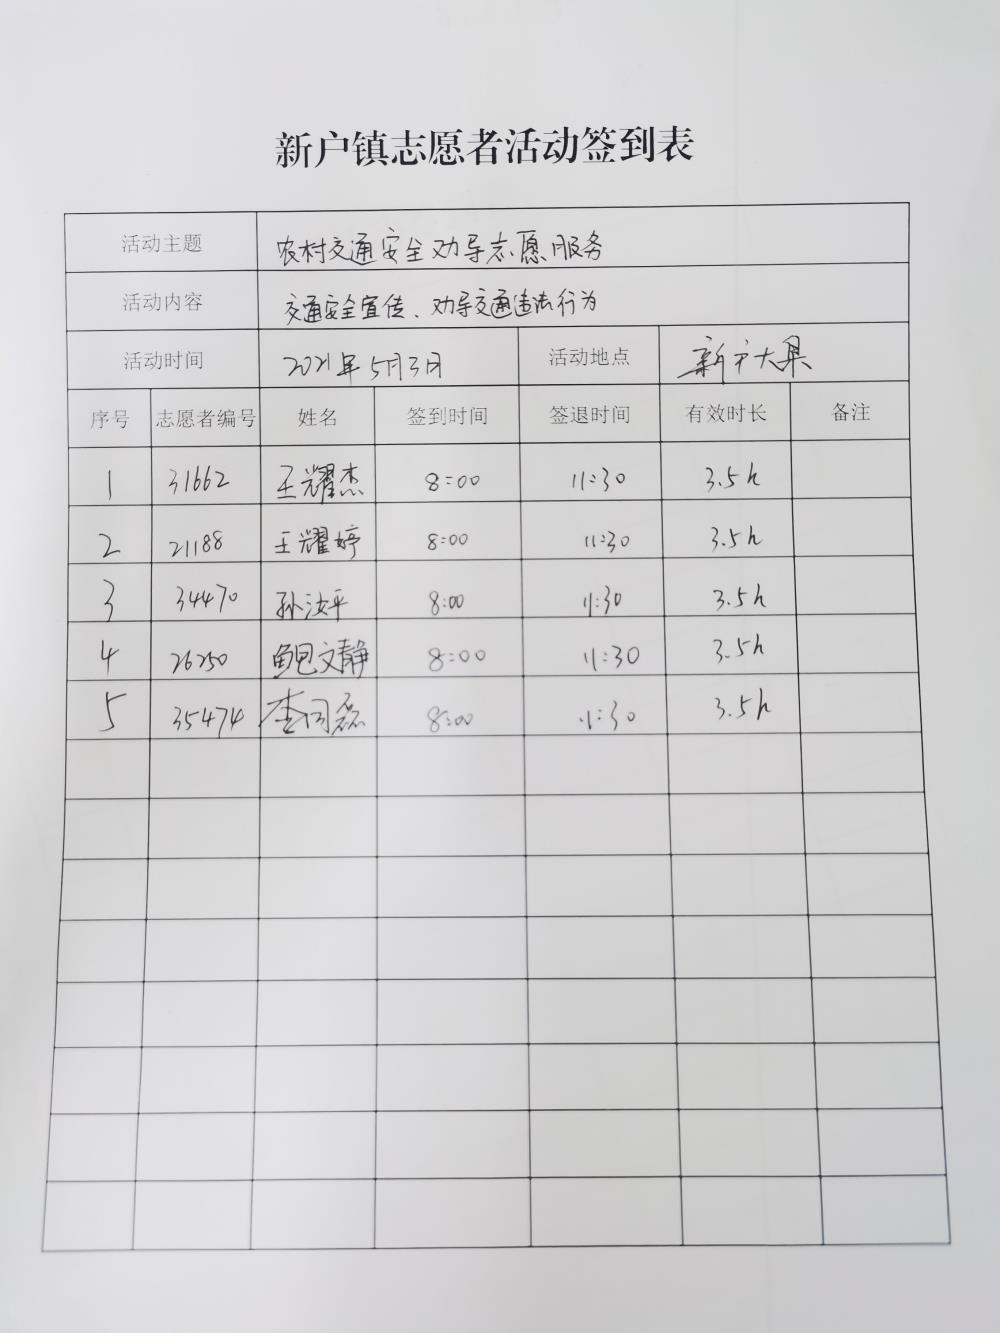 新户镇志愿者活动签到表
活动主题 农村交通安全劝导志愿服务
活动内容 交通安全宣传、劝导交通违法行为
活动时间 2021年5月3日 活动地点 新户大集
序号 志愿者编号 姓名 签到时间 签退时间 有效时长 备注
1 31662 王耀杰 8:00 11:30 3.5h
2 21188 王耀婷 8:00 11:30 3.5h
3 34470 孙汝平 8:00 11:30 3.5h
4 26250 鲍文静 8:00 11:30 3.5h
5 35474 李同磊 8:00 11:30 3.5h